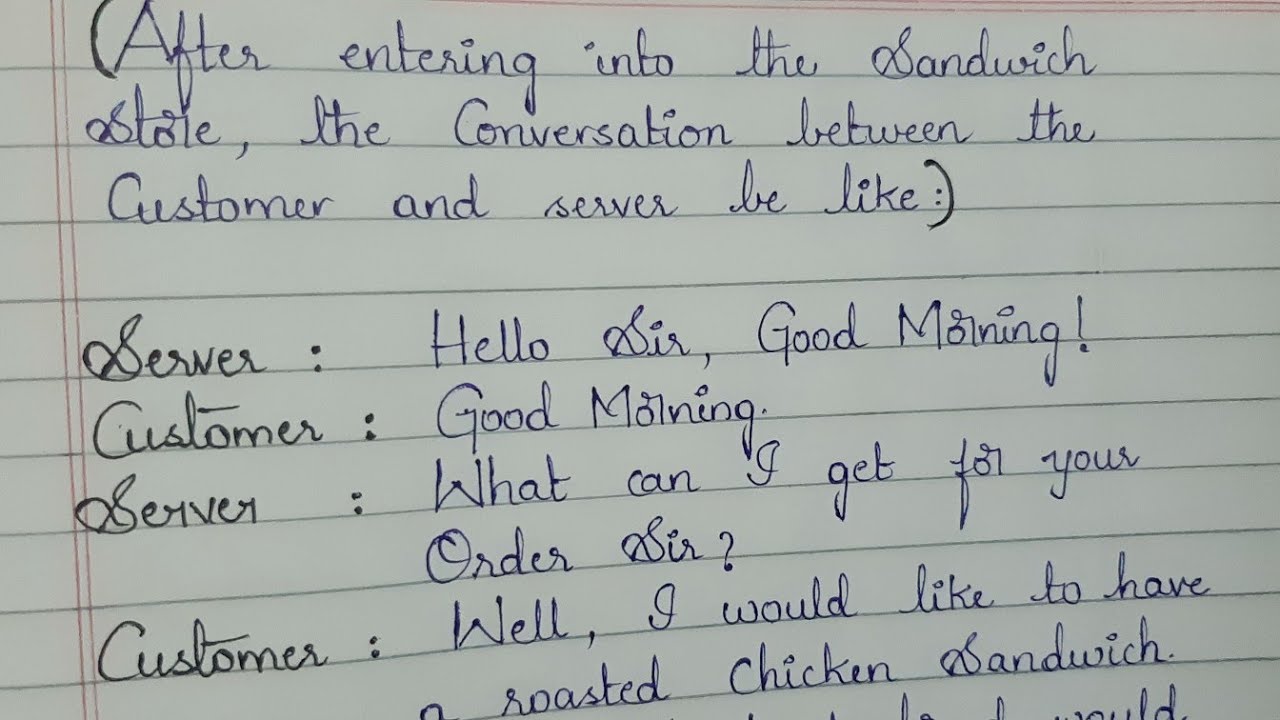 (After entering into the Sandwich
Store, the Conversation between the
Customer and server be like:)
Server : Hello Sir, Good Morning!
Customer : Good Morning.
Server : What can I get for your
Order Sir?
Customer : Well, I would like to have
a roasted Chicken Sandwich.
I would